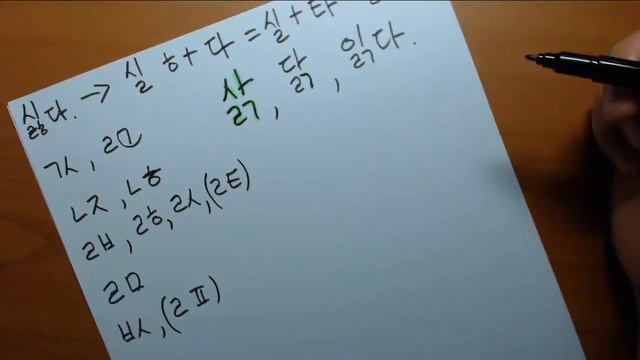 싫다. → 실 ㅎ+다 = 실+타
삵, 닭, 읽다.
ㄱㅅ, ㄹㄱ
ㄴㅈ, ㄴㅎ
ㄹㅂ, ㄹㅎ, ㄹㅅ, (ㄹㅌ)
ㄹㅁ
ㅂㅅ, (ㄹㅍ)